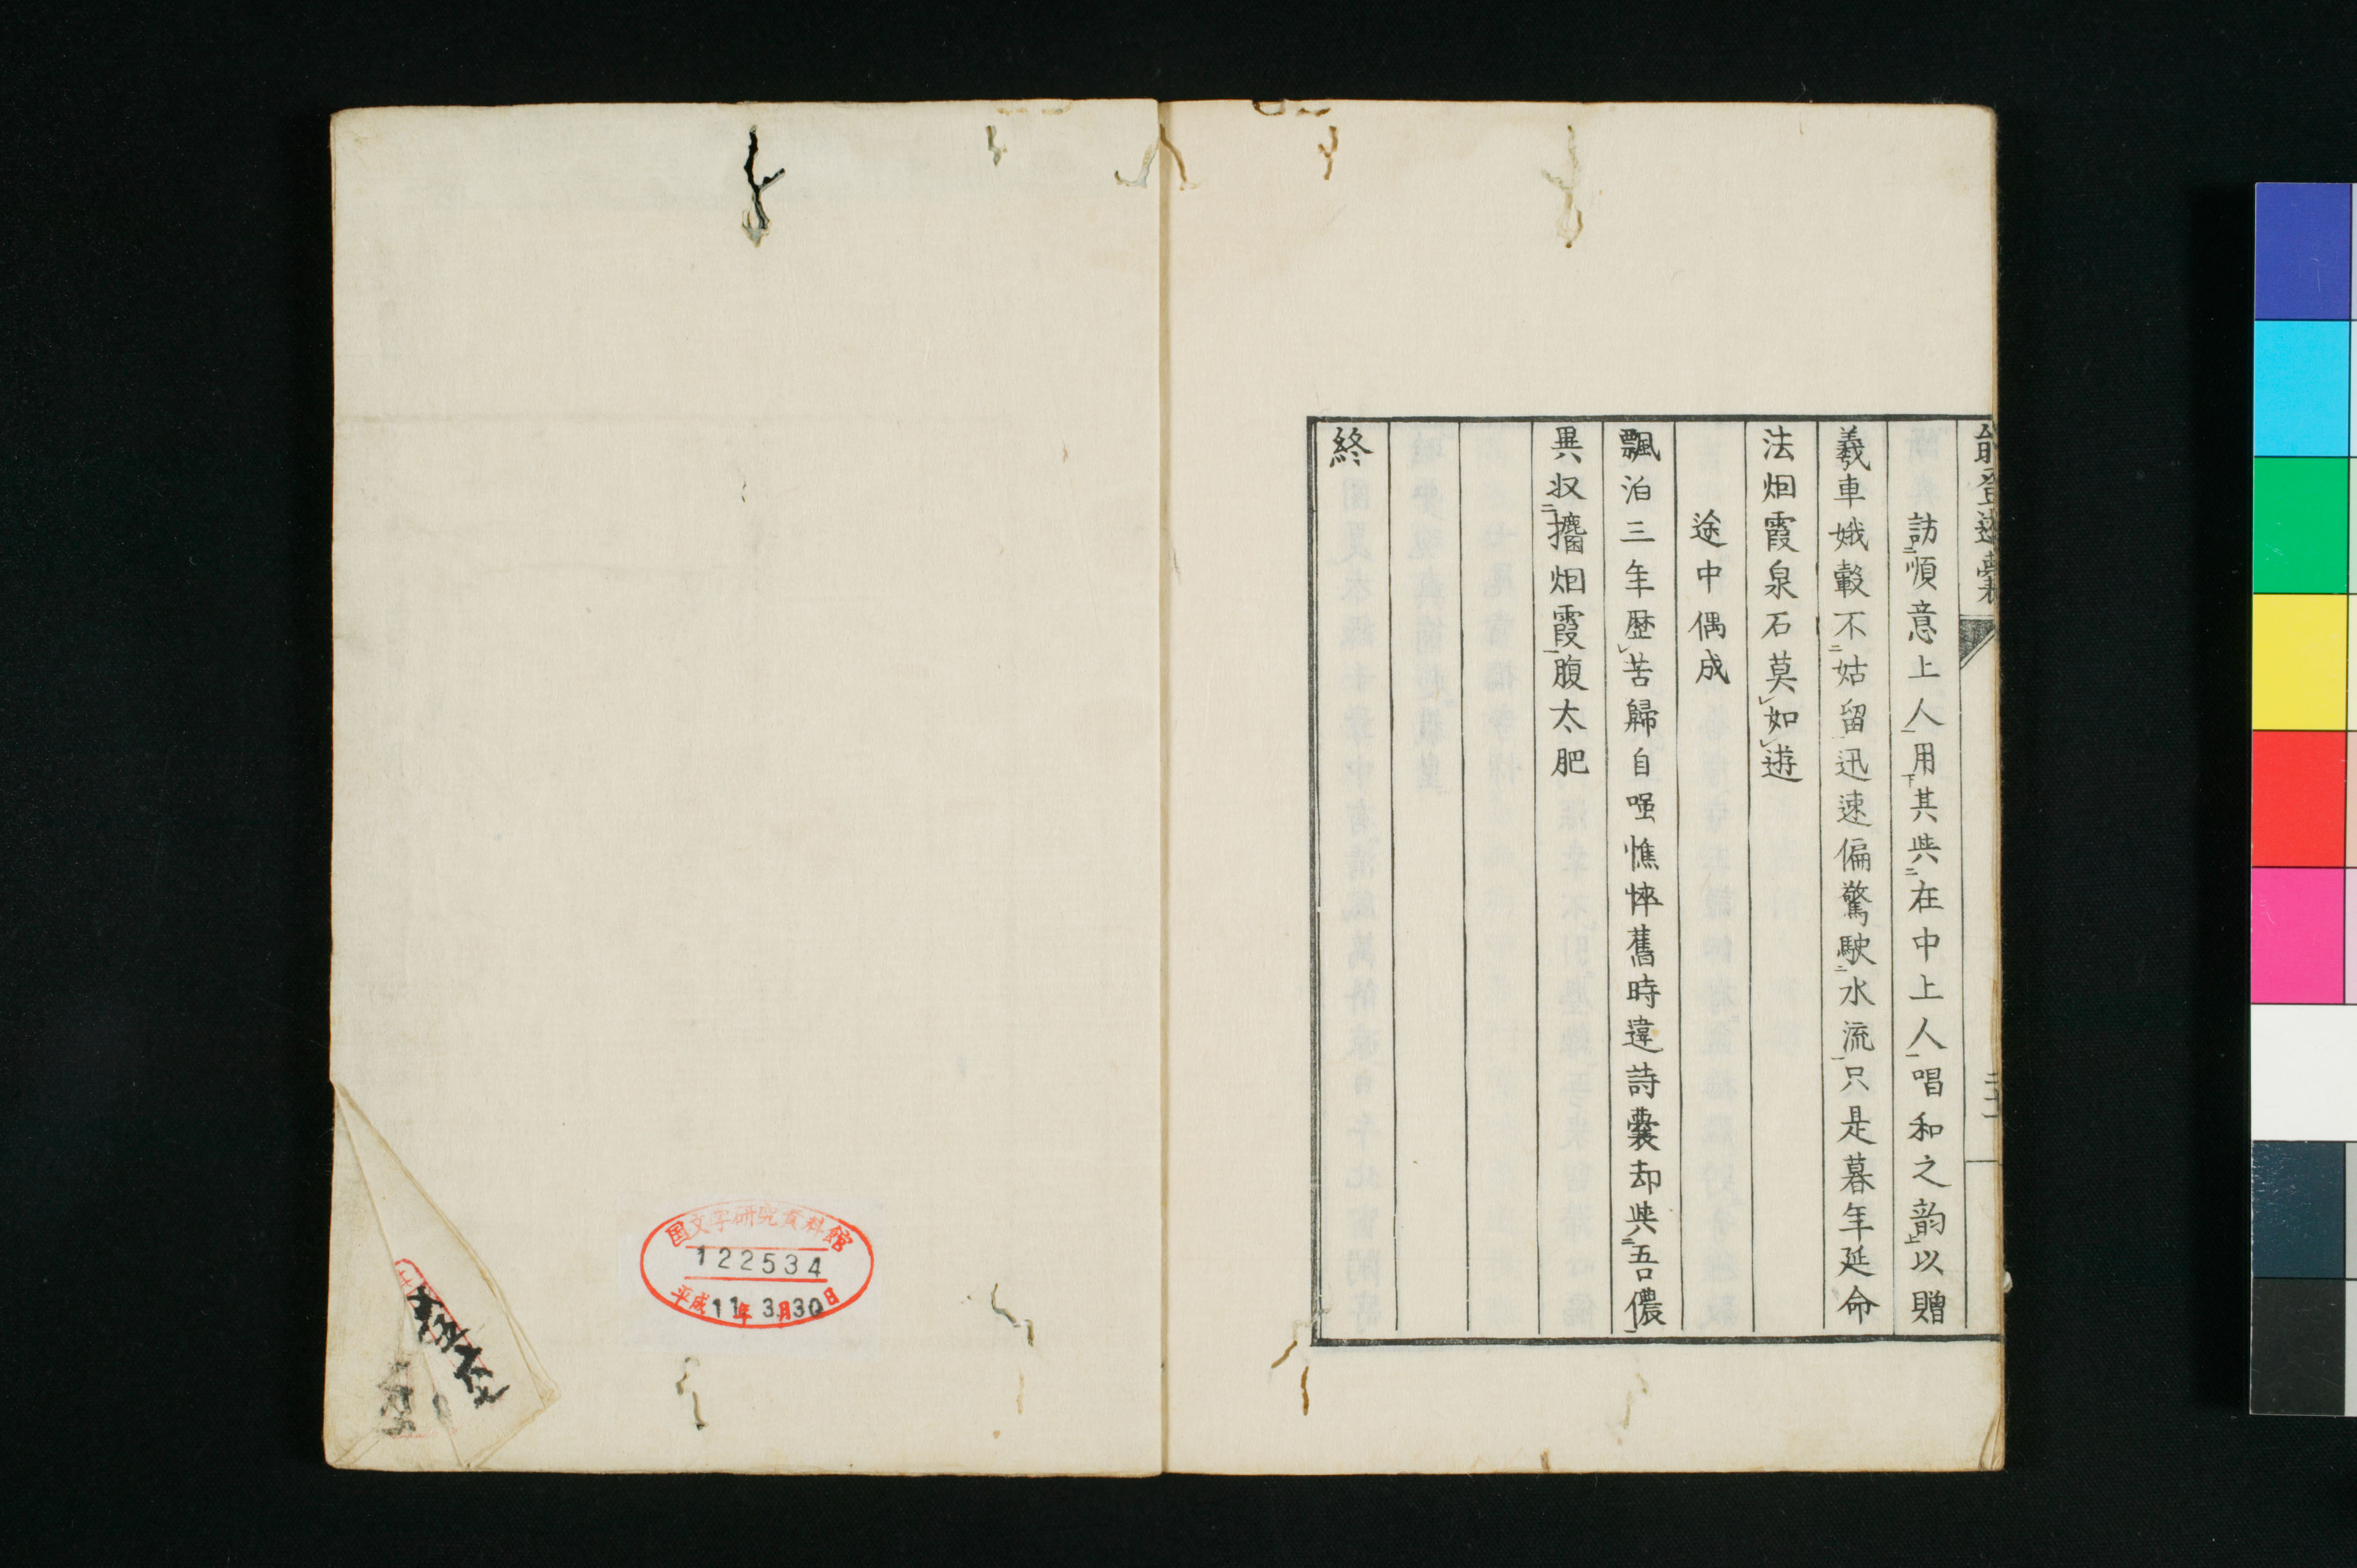 能登遊囊
二十一
訪順意上人用其與在中上人唱和之韵以贈
羲車娥轂不姑留迅速偏驚駛水流只是暮年延命
法烟霞泉石莫如遊
途中偶成
飄泊三年歷苦歸自嗤憔悴舊時違詩囊却與吾儂
異収擥烟霞腹太肥
終
国文学研究資料館
122534
平成11年3月30日